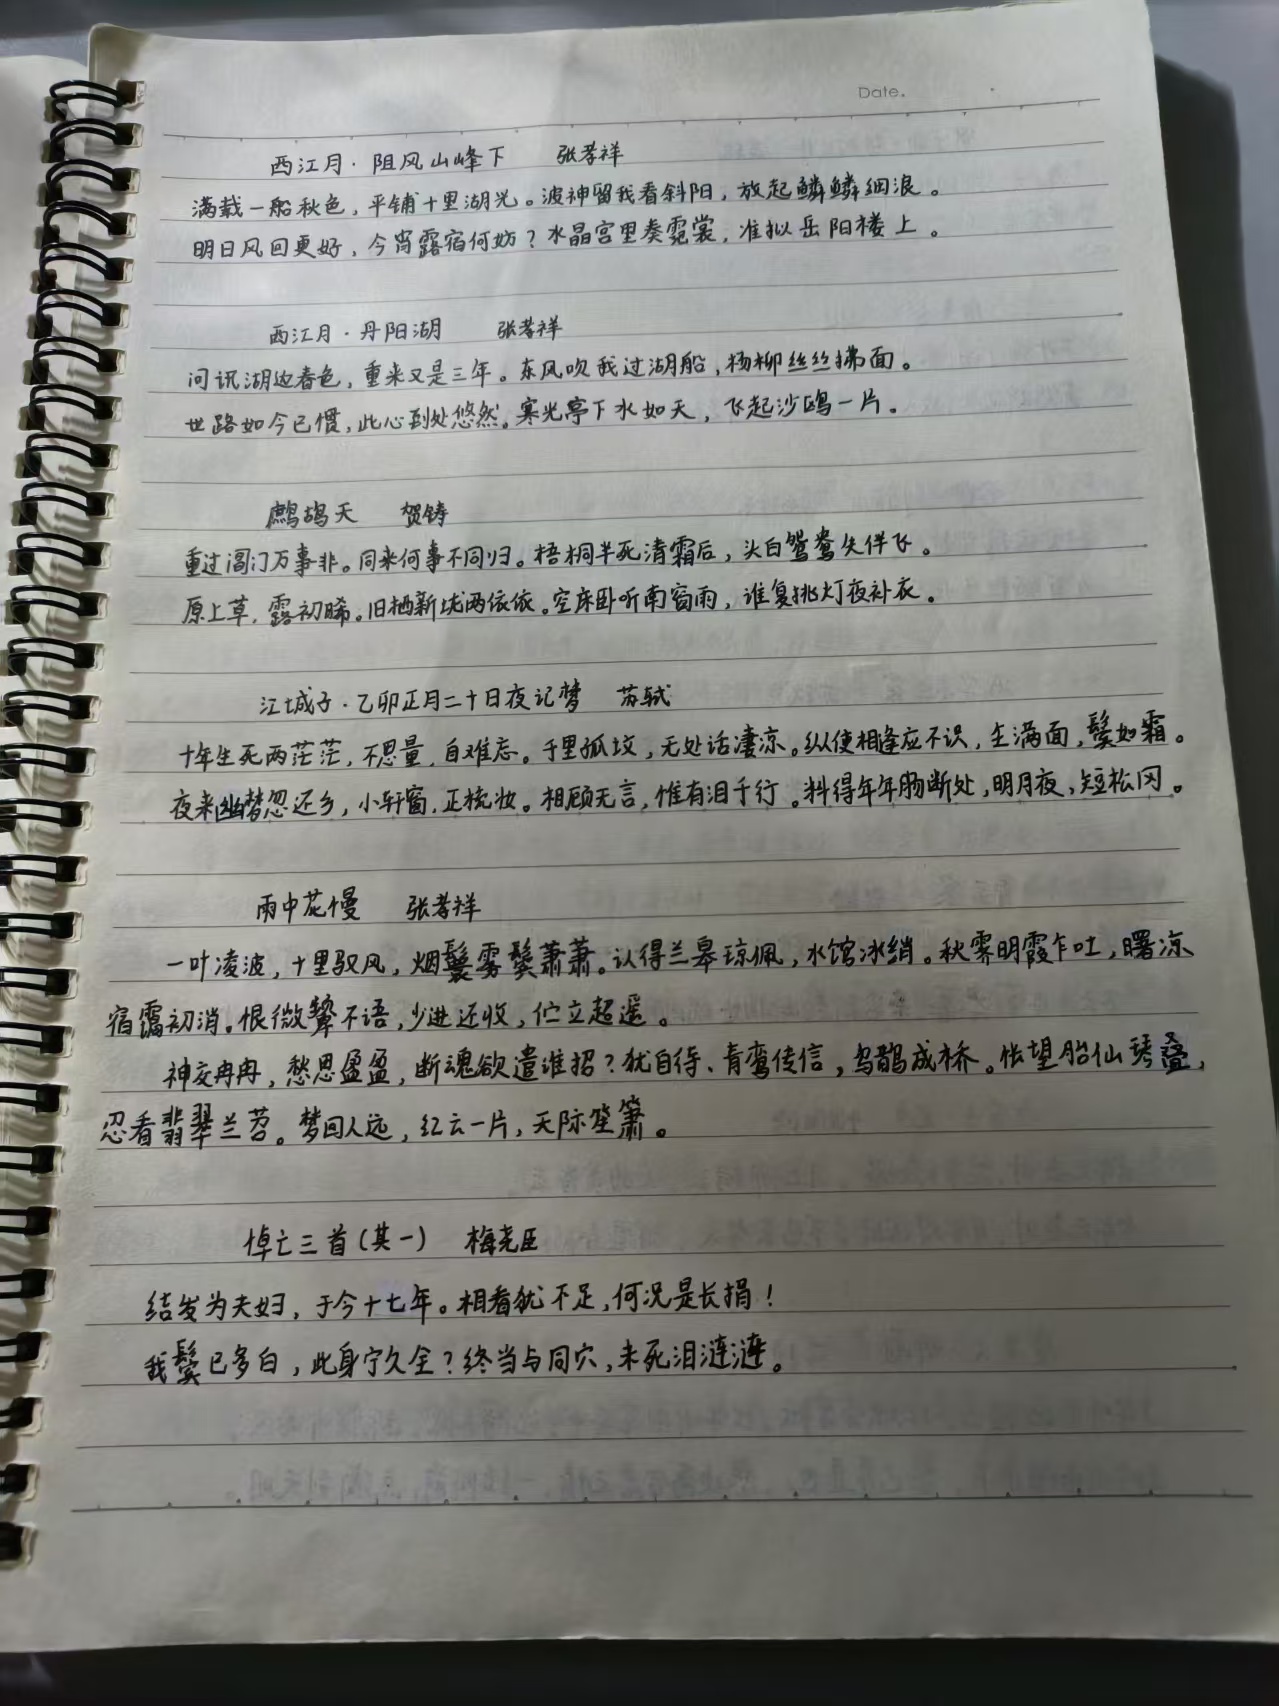 Date.
西江月·阻风山峰下 张孝祥
满载一船秋色，平铺十里湖光。波神留我看斜阳，放起鳞鳞细浪。
明日风回更好，今宵露宿何妨？水晶宫里奏霓裳，准拟岳阳楼上。
西江月·丹阳湖 张孝祥
问讯湖边春色，重来又是三年。东风吹我过湖船，杨柳丝丝拂面。
世路如今已惯，此心到处悠然。寒光亭下水如天，飞起沙鸥一片。
鹧鸪天 贺铸
重过阊门万事非。同来何事不同归。梧桐半死清霜后，头白鸳鸯失伴飞。
原上草，露初晞。旧栖新垅两依依。空床卧听南窗雨，谁复挑灯夜补衣。
江城子·乙卯正月二十日夜记梦 苏轼
十年生死两茫茫，不思量，自难忘。千里孤坟，无处话凄凉。纵使相逢应不识，尘满面，鬓如霜。
夜来幽梦忽还乡，小轩窗，正梳妆。相顾无言，惟有泪千行。料得年年肠断处，明月夜，短松冈。
雨中花慢 张孝祥
一叶凌波，十里驭风，烟鬟雾鬓萧萧。认得兰皋琼佩，水馆冰绡。秋霁明霞乍吐，曙凉
宿霭初消。恨微颦不语，少进还收，伫立超遥。
神交冉冉，愁思盈盈，断魂欲遣谁招？犹自待、青鸾传信，乌鹊成桥。怅望胎仙琴叠，
忍看翡翠兰苕。梦回人远，红云一片，天际笙箫。
悼亡三首（其一） 梅尧臣
结发为夫妇，于今十七年。相看犹不足，何况是长捐！
我鬓已多白，此身宁久全？终当与同穴，未死泪涟涟。